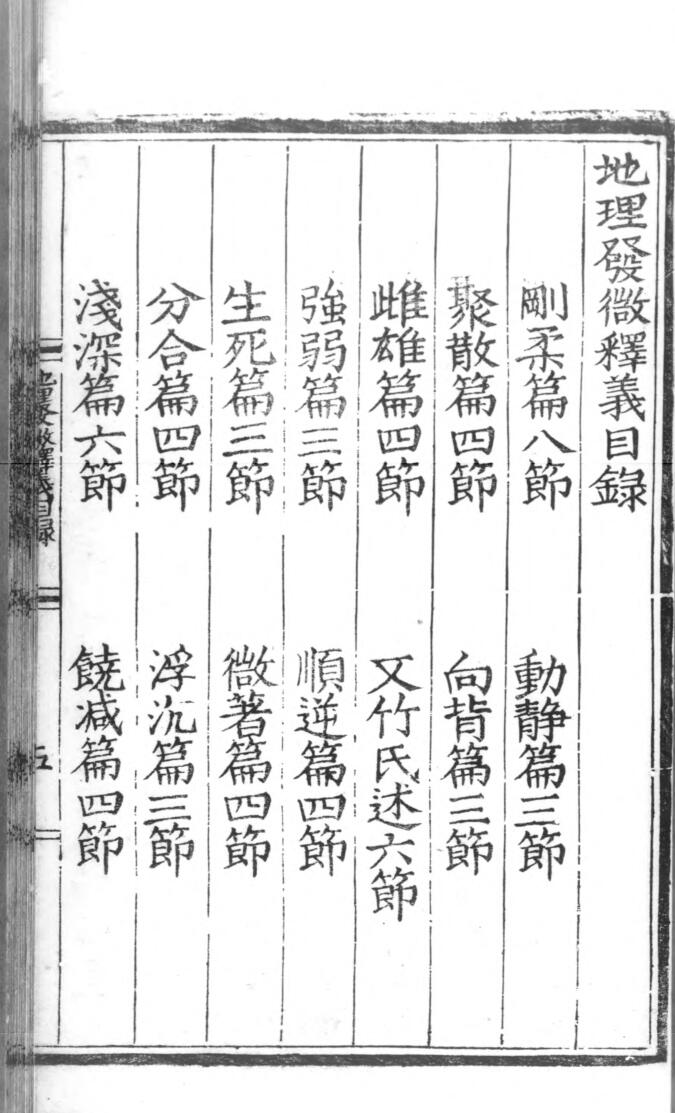 地理發微釋義目録
剛柔篇八節　動靜篇三節
聚散篇四節　向背篇三節
雌雄篇四節　又竹氏述六節
強弱篇三節　順逆篇四節
生死篇三節　微著篇四節
分合篇四節　浮沉篇三節
淺深篇六節　饒减篇四節
地理發微釋義目録
五